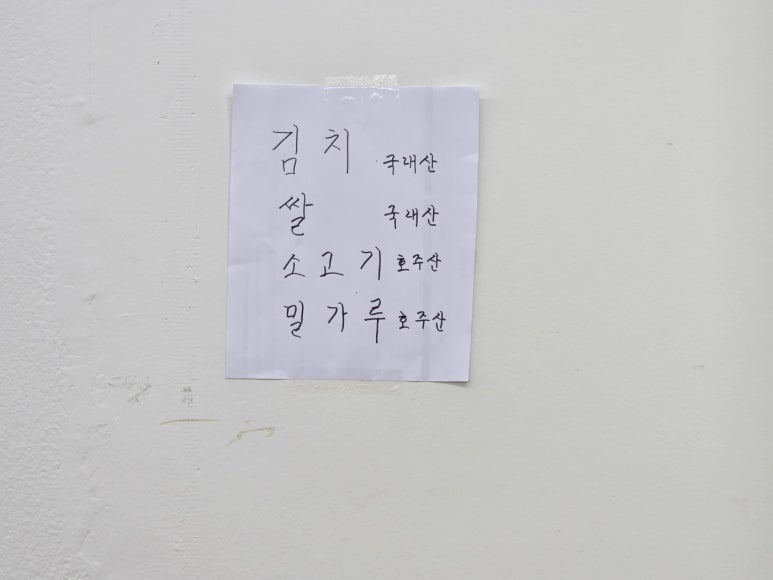 김치 국내산
쌀 국내산
소고기 호주산
밀가루 호주산